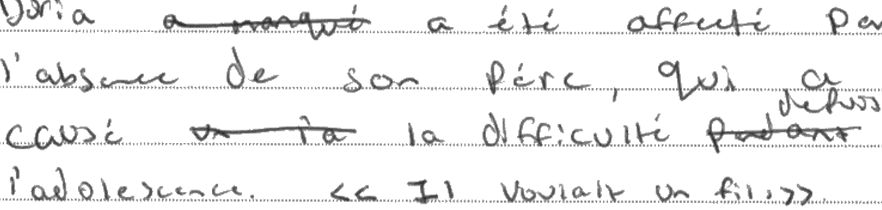 Doria a manqué a été affecté pa
l'absence de son Pére, qui a
causé un la la difficulté pendant depuis
l'adolescence. << Il voulait un fils>>